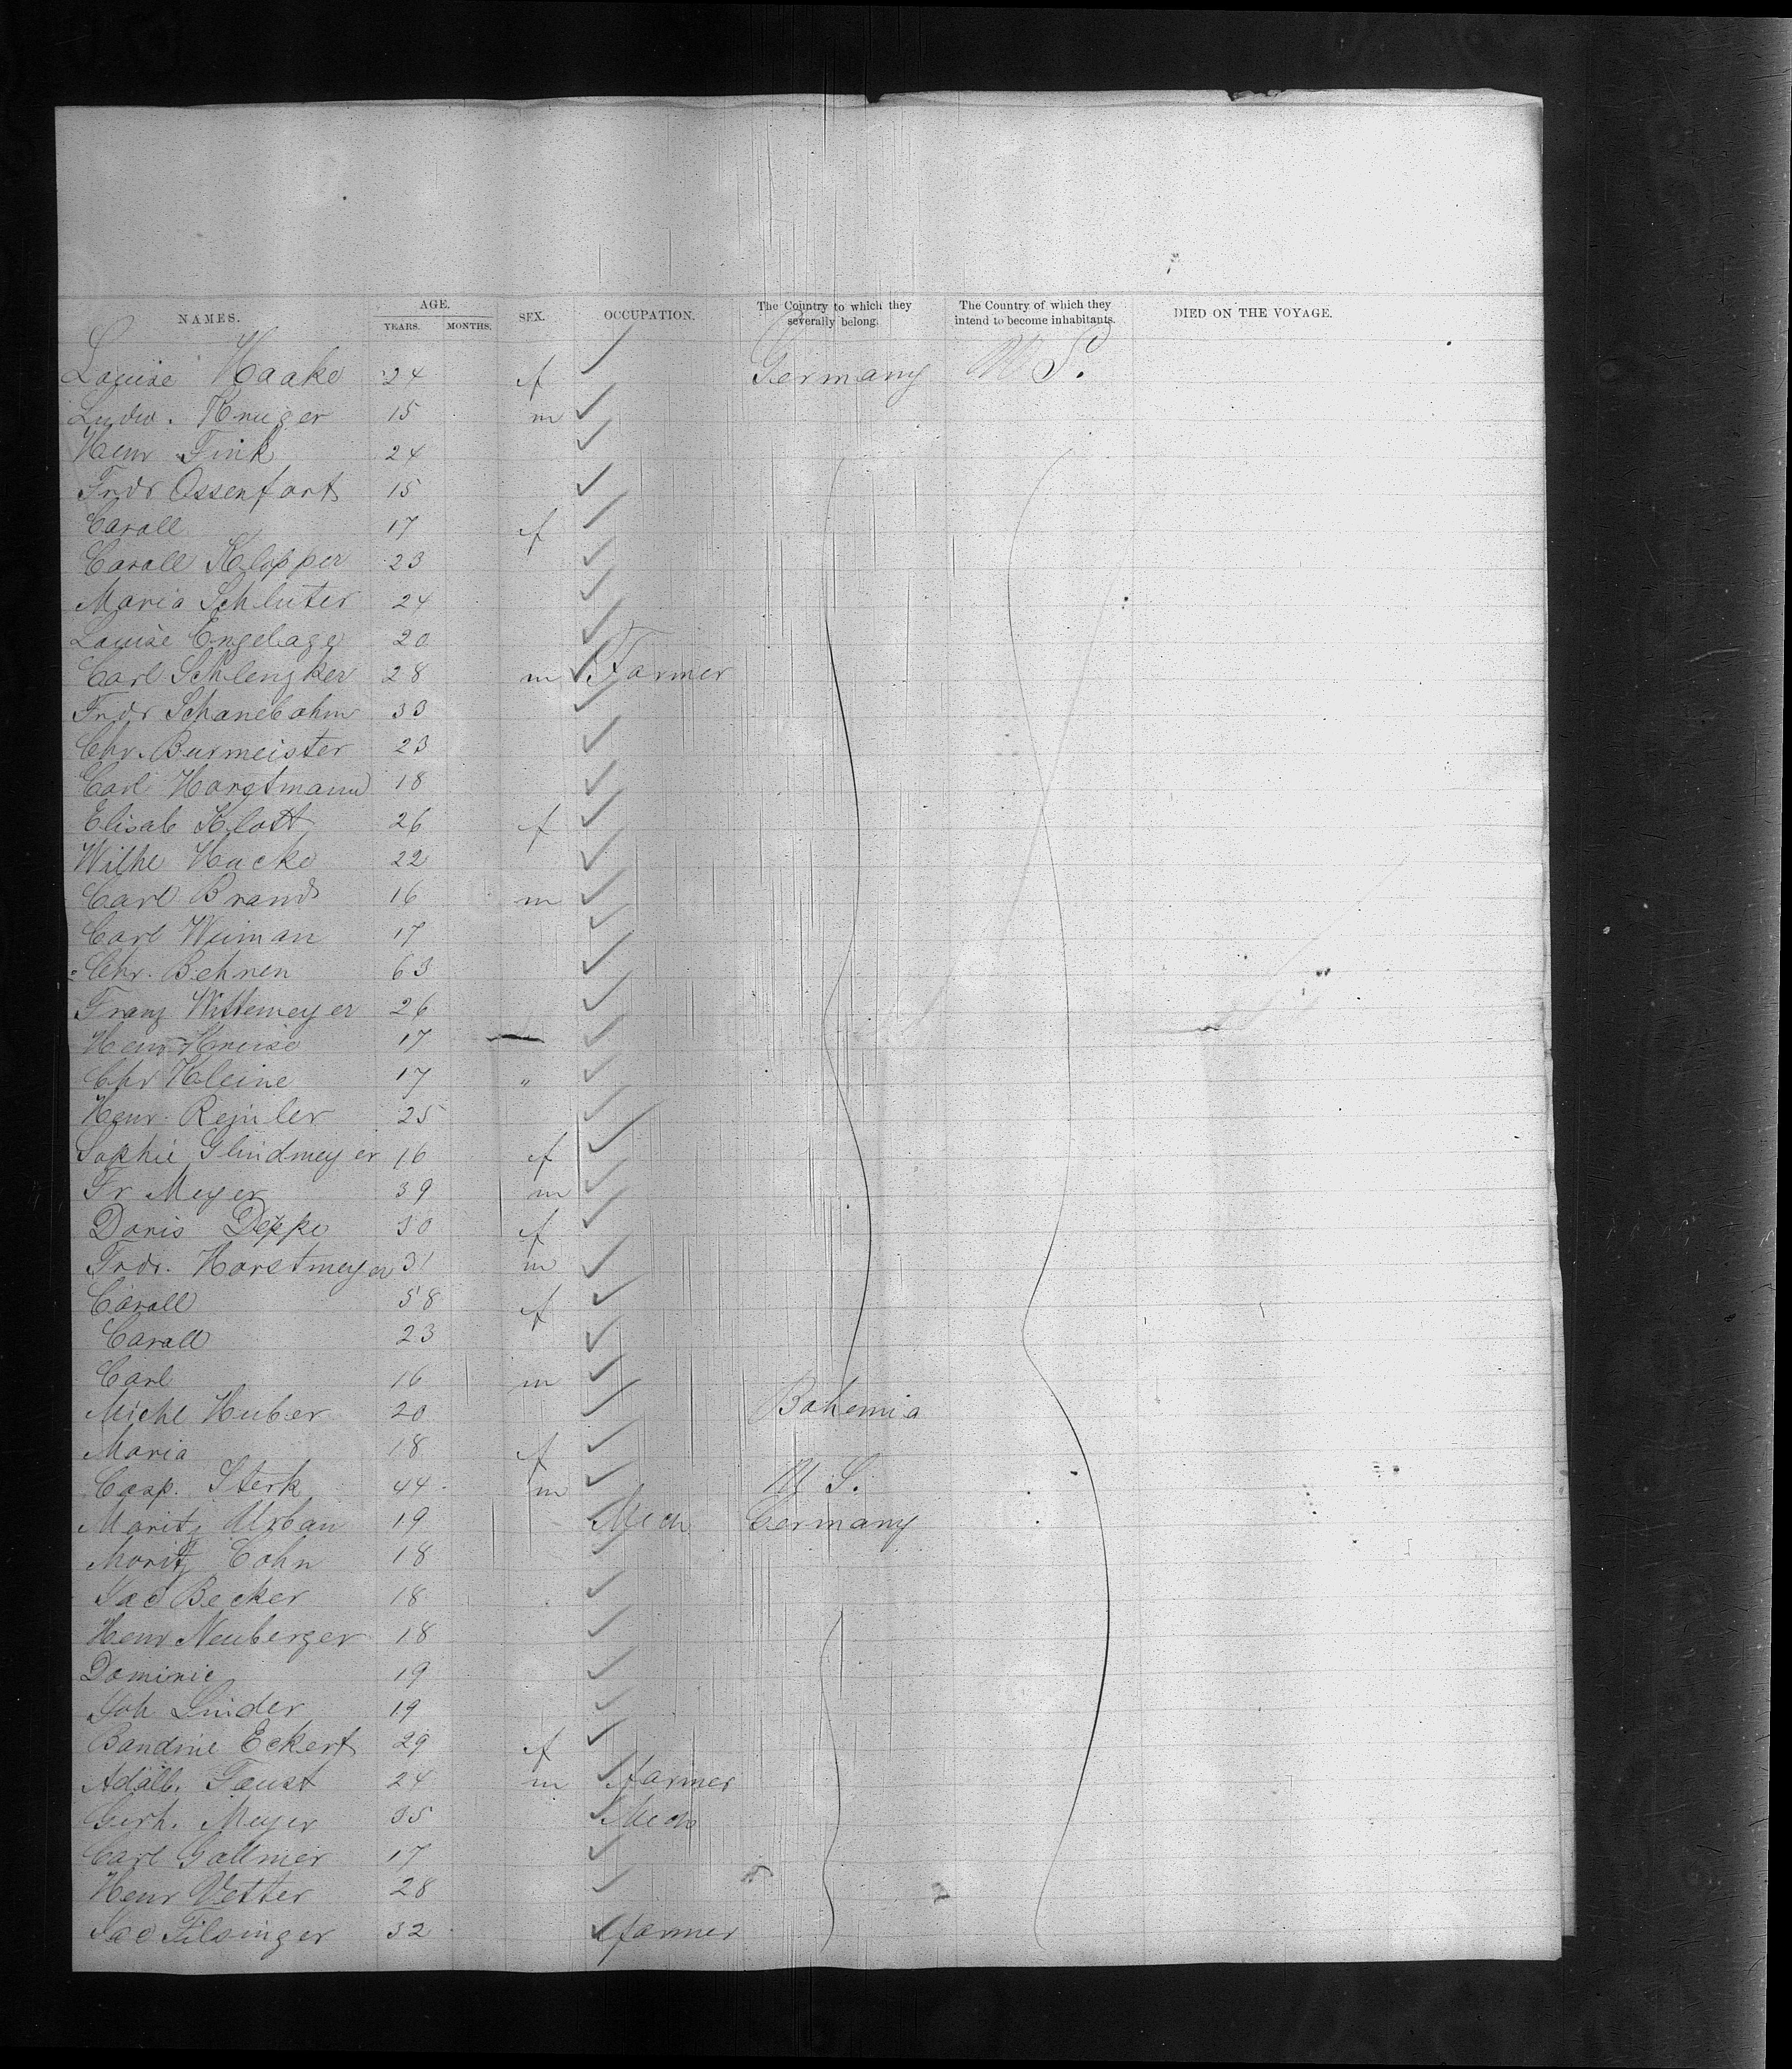 NAMES. AGE. SEX. OCCUPATION. The Country to which they severally belong. The Country of which they intend to become inhabitants. DIED ON THE VOYAGE.
YEARS. MONTHS.
Louise Haake 24 f Germany U S.
Ludw. Kruger 15 m
Henr Fink 24
Fridr Ossenfort 15
Caroll 17 f
Caroll Klopper 23
Maria Schluter 24
Louise Engelage 20
Carl Schlengker 28 m Farmer
Fridr Schanebohm 33
Chr. Burmeister 23
Carl Horstmann 18
Elisab Klott 26 f
Wilhe Hucke 22
Carl Brand 16 m
Carl Weiman 17
Chr. Behnen 63
Franz Wittemeyer 26
Henr Kruise 17
Chr Kleine 17 "
Henr. 25
Sophie Glindmeyer 16 f
Fr Meyer 39 m
Doris Deppe 50 f
Fridr. Horstmeyer 31 m
Caroll 58 f
Caroll 23
Carl 16 m
Michl Huber 20 Bohemia
Maria 18 f
Casp. Sterk 44 m U S.
Moritz Urban 19 Mech Germany
Moritz Cohn 18
Jac Becker 18
Henr Neuberger 18
Dominic 19
Joh Linder 19
Bandine Eckert 29 f
Adalb. Faust 24 m farmer
Gerh. Meyer 35 Mech
Carl Gallmer 17
Henr Vetter 28
Jac Filsinger 32 farmer